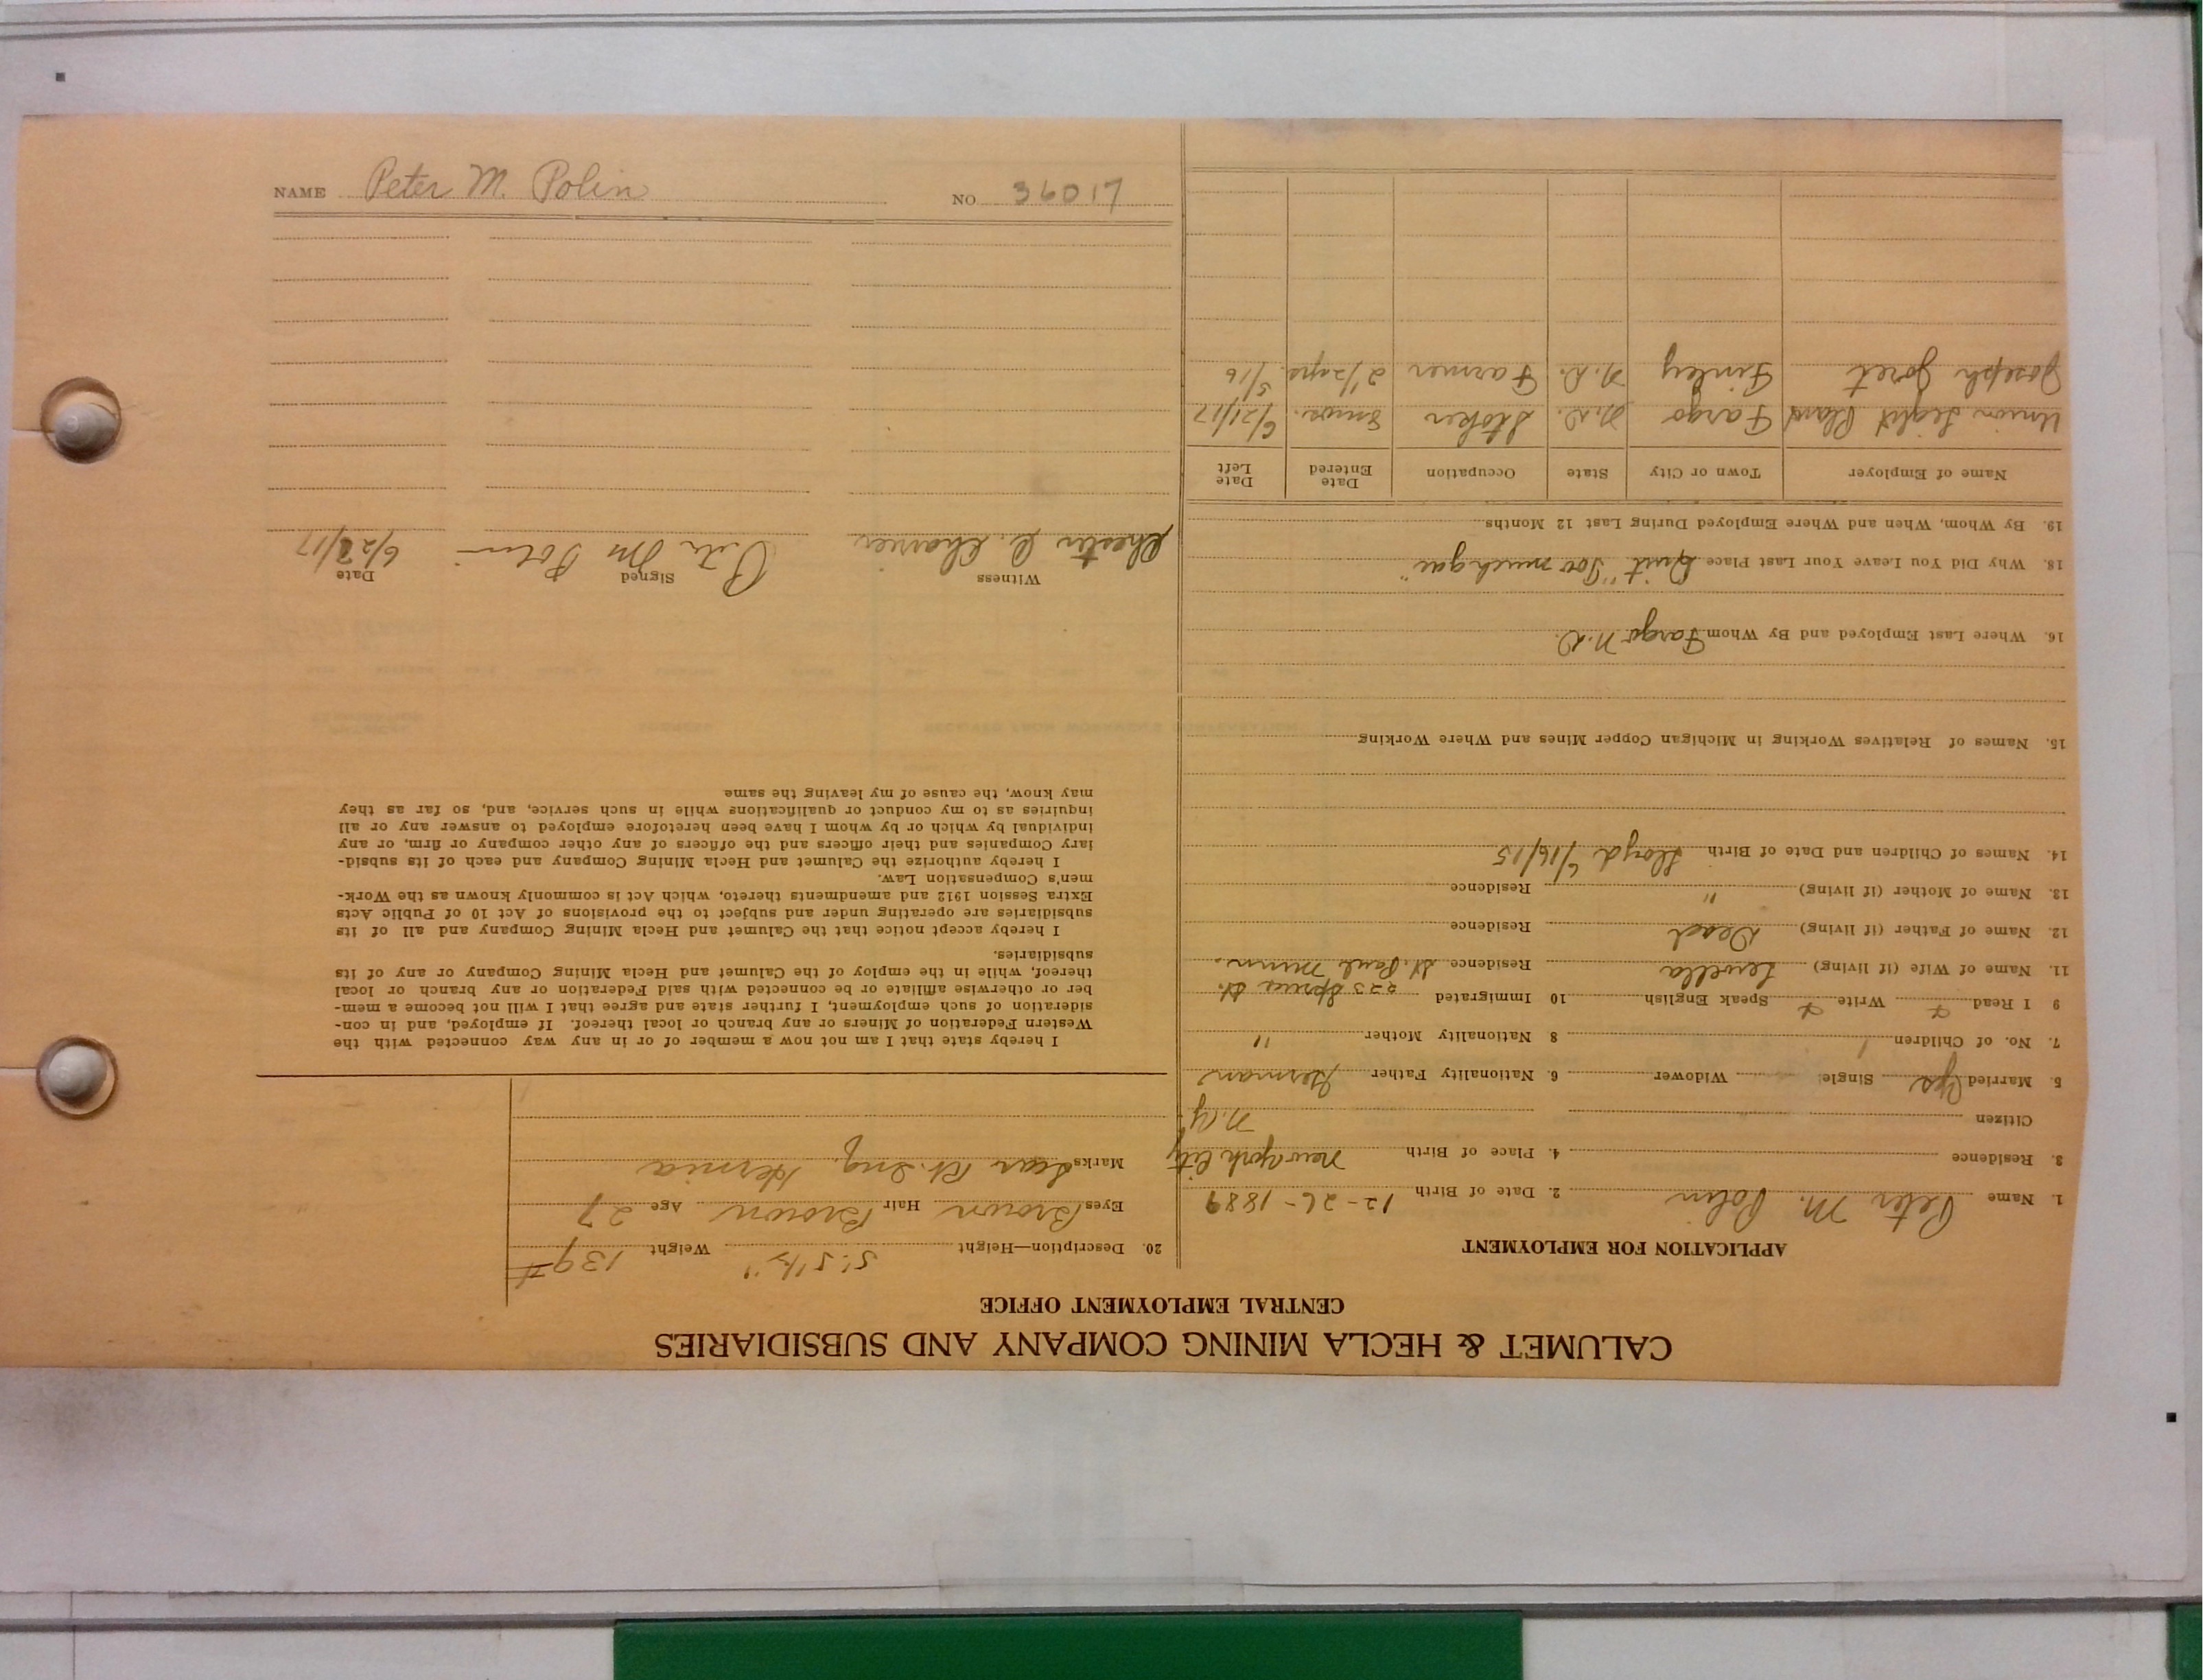 CALUMET & HECLA MINING COMPANY AND SUBSIDIARIES
CENTRAL EMPLOYMENT OFFICE
APPLICATION FOR EMPLOYMENT
1. Name Peter M. Polin 2. Date of Birth 12-26-1889
3. Residence 4. Place of Birth New York City
Citizen N.Y.
5. Married Yes Single Widower 6. Nationality Father German
7. No. of Children 1 8 Nationality Mother "
9 I Read Write Speak English 10 Immigrated 225 Spruce St.
11. Name of Wife (if living) Lewella Residence St. Paul Minn.
12. Name of Father (if living) Dead Residence
13. Name of Mother (if living) " Residence
14. Names of Children and Date of Birth Lloyd 6/16/15
15. Names of Relatives Working in Michigan Copper Mines and Where Working
16. Where Last Employed and By Whom Fargo N.D.
18. Why Did You Leave Your Last Place Quit "Too much gas"
19. By Whom, When and Where Employed During Last 12 Months
Name of Employer Town or City State Occupation Date Entered Date Left
Union Light Plant Fargo N.D. Stoker 8 mos. 6/21/17
Joseph Joret Finley N.D. Farmer 2 1/2 yrs. 5/16
20. Description—Height 5' 5 1/2" Weight 139 #
Eyes Brown Hair Brown Age 27
Marks Scar Rt. Ing. Hernia
I hereby state that I am not now a member of or in any way connected with the
Western Federation of Miners or any branch or local thereof. If employed, and in con-
sideration of such employment, I further state and agree that I will not become a mem-
ber or otherwise affiliate or be connected with said Federation or any branch or local
thereof, while in the employ of the Calumet and Hecla Mining Company or any of its
subsidiaries.
I hereby accept notice that the Calumet and Hecla Mining Company and all of its
subsidiaries are operating under and subject to the provisions of Act 10 of Public Acts
Extra Session 1912 and amendments thereto, which Act is commonly known as the Work-
men's Compensation Law.
I hereby authorize the Calumet and Hecla Mining Company and each of its subsid-
iary Companies and their officers and the officers of any other company or firm, or any
individual by which or by whom I have been heretofore employed to answer any or all
inquiries as to my conduct or qualifications while in such service, and, so far as they
may know, the cause of my leaving the same
Witness Signed Date
Chester C. Peter M Polin 6/28/17
NAME Peter M. Polin NO 36017